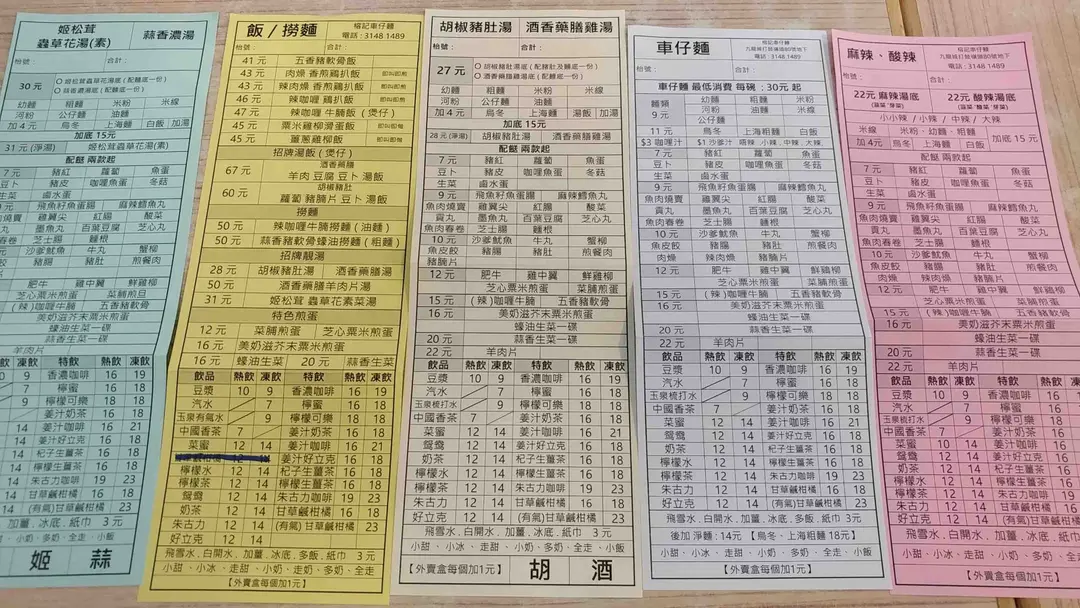 姬松茸
蟲草花湯(素)
蒜香濃湯
枱號:
合計:
30元
姬松茸蟲草花湯底(配麵底一份)
蒜香濃湯底(配麵底一份)
幼麵 粗麵 米粉 米線
河粉 公仔麵 油麵
加4元 烏冬 上海麵 白飯 加湯
加底 15元
31元(淨湯) 姬松茸蟲草花湯(素)
配餸 兩款起
7元 豬紅 蘿蔔 魚蛋
豆卜 豬皮 咖喱魚蛋 冬菇
生菜 鹵水蛋
飛魚籽魚蛋腸 麻辣鱈魚丸
魚肉燒賣 雞翼尖 紅腸 酸菜
貢丸 墨魚丸 百葉豆腐 芝心丸
魚肉春卷 芝士腸 麵根
元 沙爹魷魚 牛丸 蟹柳
魚皮餃 豬腸 豬肚 煎餐肉
肥牛 雞中翼 鮮雞柳
芝心粟米煎蛋 菜脯煎旦
(辣)咖喱牛腩 五香豬軟骨
美奶滋芥末粟米煎蛋
蠔油生菜一碟
蒜香生菜一碟
羊肉片
飲 凍飲 特飲 熱飲 凍飲
9 香濃咖啡 16 19
7 檸蜜 16 18
9 檸檬可樂 18 18
姜汁奶茶 16 18
14 姜汁咖啡 16 21
14 姜汁好立克 16 18
14 杞子生薑茶 16 18
14 檸檬生薑茶 16 18
14 朱古力咖啡 19 23
14 甘草鹹柑橘 16 18
14 (有氣)甘草鹹柑橘 23
加薑.冰底.紙巾 3元
小奶、多奶、全走、小飯
【外賣盒每個加1元】
姬 蒜
飯/撈麵
榕記車仔麵
電話:3148 1489
枱號:
合計:
41元 五香豬軟骨飯
43元 肉燥 香煎鷄扒飯 即叫即煎
44元 辣肉燥 香煎鷄扒飯 即叫即煎
46元 辣咖喱 鷄扒飯 即叫即煎
47元 辣咖喱 牛腩飯(煲仔)
45元 粟米雞柳滑蛋飯 即叫即煮
45元 薑蔥雞柳飯 即叫即煮
招牌湯飯(煲仔)
67元 酒香藥膳
羊肉 豆腐 豆卜 湯飯
60元 胡椒豬肚
蘿蔔 豬腩片 豆卜 湯飯
撈麵
50元 辣咖喱牛腩撈麵(油麵)
50元 蒜香豬軟骨蠔油撈麵(粗麵)
招牌靚湯
28元 胡椒豬肚湯 酒香藥膳湯
50元 酒香藥膳羊肉片湯
31元 姬松茸 蟲草花素菜湯
特色煎蛋
12元 菜脯煎蛋 芝心粟米煎蛋
16元 美奶滋芥末粟米煎蛋
16元 蠔油生菜 20元 蒜香生菜
飲品 熱飲 凍飲 特飲 熱飲 凍飲
豆漿 10 9 香濃咖啡 16 19
汽水 7 檸蜜 16 18
玉泉有氣水 9 檸檬可樂 18 18
中國香茶 7 姜汁奶茶 16 18
菜蜜 12 14 姜汁咖啡 16 21
姜汁好立克 16 18
檸檬水 12 14 杞子生薑茶 16 18
檸檬茶 12 14 檸檬生薑茶 16 18
鴛鴦 12 14 朱古力咖啡 19 23
奶茶 12 14 甘草鹹柑橘 16 18
朱古力 12 14 (有氣)甘草鹹柑橘 23
好立克 12 14
飛雪水.白開水.加薑.冰底.多飯.紙巾 3元
小甜、小冰、走甜、小奶、走奶、多奶、全走
【外賣盒每個加1元】
胡椒豬肚湯
酒香藥膳雞湯
枱號:
合計:
27元
胡椒豬肚湯底(配豬肚及麵底一份)
酒香藥膳雞湯底(配雞及麵底一份)
幼麵 粗麵 米粉 米線
河粉 公仔麵 油麵
加4元 烏冬 上海麵 白飯 加湯
加底 15元
28元(淨湯) 胡椒豬肚湯 酒香藥膳雞湯
配餸 兩款起
7元 豬紅 蘿蔔 魚蛋
豆卜 豬皮 咖喱魚蛋 冬菇
生菜 鹵水蛋
9元 飛魚籽魚蛋腸 麻辣鱈魚丸
魚肉燒賣 雞翼尖 紅腸 酸菜
貢丸 墨魚丸 百葉豆腐 芝心丸
魚肉春卷 芝士腸 麵根
10元 沙爹魷魚 牛丸 蟹柳
魚皮餃 豬腸 豬肚 煎餐肉
豬腩片
12元 肥牛 雞中翼 鮮雞柳
芝心粟米煎蛋 菜脯煎蛋
15元 (辣)咖喱牛腩 五香豬軟骨
16元 美奶滋芥末粟米煎蛋
蠔油生菜一碟
20元 蒜香生菜一碟
22元 羊肉片
飲品 熱飲 凍飲 特飲 熱飲 凍飲
豆漿 10 9 香濃咖啡 16 19
汽水 7 檸蜜 16 18
玉泉梳打水 9 檸檬可樂 18 18
中國香茶 7 姜汁奶茶 16 18
菜蜜 12 14 姜汁咖啡 16 21
鴛鴦 12 14 姜汁好立克 16 18
奶茶 12 14 杞子生薑茶 16 18
檸檬水 12 14 檸檬生薑茶 16 18
檸檬茶 12 14 朱古力咖啡 19 23
朱古力 12 14 甘草鹹柑橘 16 18
好立克 12 14 (有氣)甘草鹹柑橘 23
飛雪水.白開水.加薑.冰底.紙巾 3元
小甜、小冰、走甜、小奶、多奶、全走、小飯
【外賣盒每個加1元】
胡 酒
車仔麵
榕記車仔麵
九龍城打鼓嶺道80號地下
電話:3148 1489
枱號:
合計:
車仔麵 最低消費 每碗:30元 起
麵類 幼麵 粗麵 米粉 米線
9元 河粉 油麵
公仔麵
11元 烏冬 上海粗麵 白飯
$3 咖喱汁 $1沙爹汁 唔辣 小辣 中辣 大辣
配餸 兩款起
7元 豬紅 蘿蔔 魚蛋
豆卜 豬皮 咖喱魚蛋 冬菇
生菜 鹵水蛋
9元 飛魚籽魚蛋腸 麻辣鱈魚丸
魚肉燒賣 雞翼尖 紅腸 酸菜
貢丸 墨魚丸 百葉豆腐 芝心丸
魚肉春卷 芝士腸 麵根
10元 沙爹魷魚 牛丸 蟹柳
魚皮餃 豬腸 豬肚 煎餐肉
肉燥 辣肉燥 豬腩片
12元 肥牛 雞中翼 鮮鷄柳
芝心粟米煎蛋 菜脯煎蛋
15元 (辣)咖喱牛腩 五香豬軟骨
16元 美奶滋芥末粟米煎蛋
蠔油生菜一碟
20元 蒜香生菜一碟
22元 羊肉片
飲品 熱飲 凍飲 特飲 熱飲 凍飲
豆漿 10 9 香濃咖啡 16 19
汽水 7 檸蜜 16 18
玉泉梳打水 9 檸檬可樂 18 18
中國香茶 7 姜汁奶茶 16 18
菜蜜 12 14 姜汁咖啡 16 21
鴛鴦 12 14 姜汁好立克 16 18
奶茶 12 14 杞子生薑茶 16 18
檸檬水 12 14 檸檬生薑茶 16 18
檸檬茶 12 14 朱古力咖啡 19 23
朱古力 12 14 甘草鹹柑橘 16 18
好立克 12 14 (有氣)甘草鹹柑橘 23
飛雪水.白開水.加薑.冰底.多飯.紙巾 3元
後加 淨麵:14元 【烏冬、上海粗麵 18元】
小甜、小冰、走甜、小奶、走奶、多奶、全走
【外賣盒每個加1元】
麻辣、酸辣
榕記車仔麵
九龍城打鼓嶺道80號地下
電話:3148 1489
枱號:
合計:
22元 麻辣湯底
22元 酸辣湯底
小小辣/小辣/中辣/大辣
米線 米粉.幼麵.粗麵 加底 15元
加4元 烏冬 上海麵 白飯
配餸 兩款起
7元 豬紅 蘿蔔 魚蛋
豆卜 豬皮 咖喱魚蛋 冬菇
生菜 鹵水蛋
9元 飛魚籽魚蛋腸 麻辣鱈魚丸
魚肉燒賣 雞翼尖 紅腸 酸菜
貢丸 墨魚丸 百葉豆腐 芝心丸
魚肉春卷 芝士腸 麵根
10元 沙爹魷魚 牛丸 蟹柳
魚皮餃 豬腸 豬肚 煎餐肉
肉燥 辣肉燥 豬腩片
12元 肥牛 雞中翼 鮮雞柳
芝心粟米煎蛋 菜脯煎蛋
15元 (辣)咖喱牛腩 五香豬軟骨
16元 美奶滋芥末粟米煎蛋
蠔油生菜一碟
20元 蒜香生菜一碟
22元 羊肉片
飲品 熱飲 凍飲 特飲 熱飲 凍飲
豆漿 10 9 香濃咖啡 16
汽水 7 檸蜜 16 18
玉泉梳打水 9 檸檬可樂 18 18
中國香茶 7 姜汁奶茶 16 18
菜蜜 10 14 姜汁咖啡 16 21
鴛鴦 12 14 姜汁好立克 16 18
奶茶 12 14 杞子生薑茶 16 18
檸檬水 12 14 檸檬生薑茶 16 18
檸檬茶 12 14 朱古力咖啡 19 23
朱古力 12 14 甘草鹹柑橘 16 18
好立克 12 14 (有氣)甘草鹹柑橘 23
飛雪水.白開水.加薑.冰底.紙巾 3元
小甜、小冰、走甜、小奶、多奶、全走
【外賣盒每個加1元】